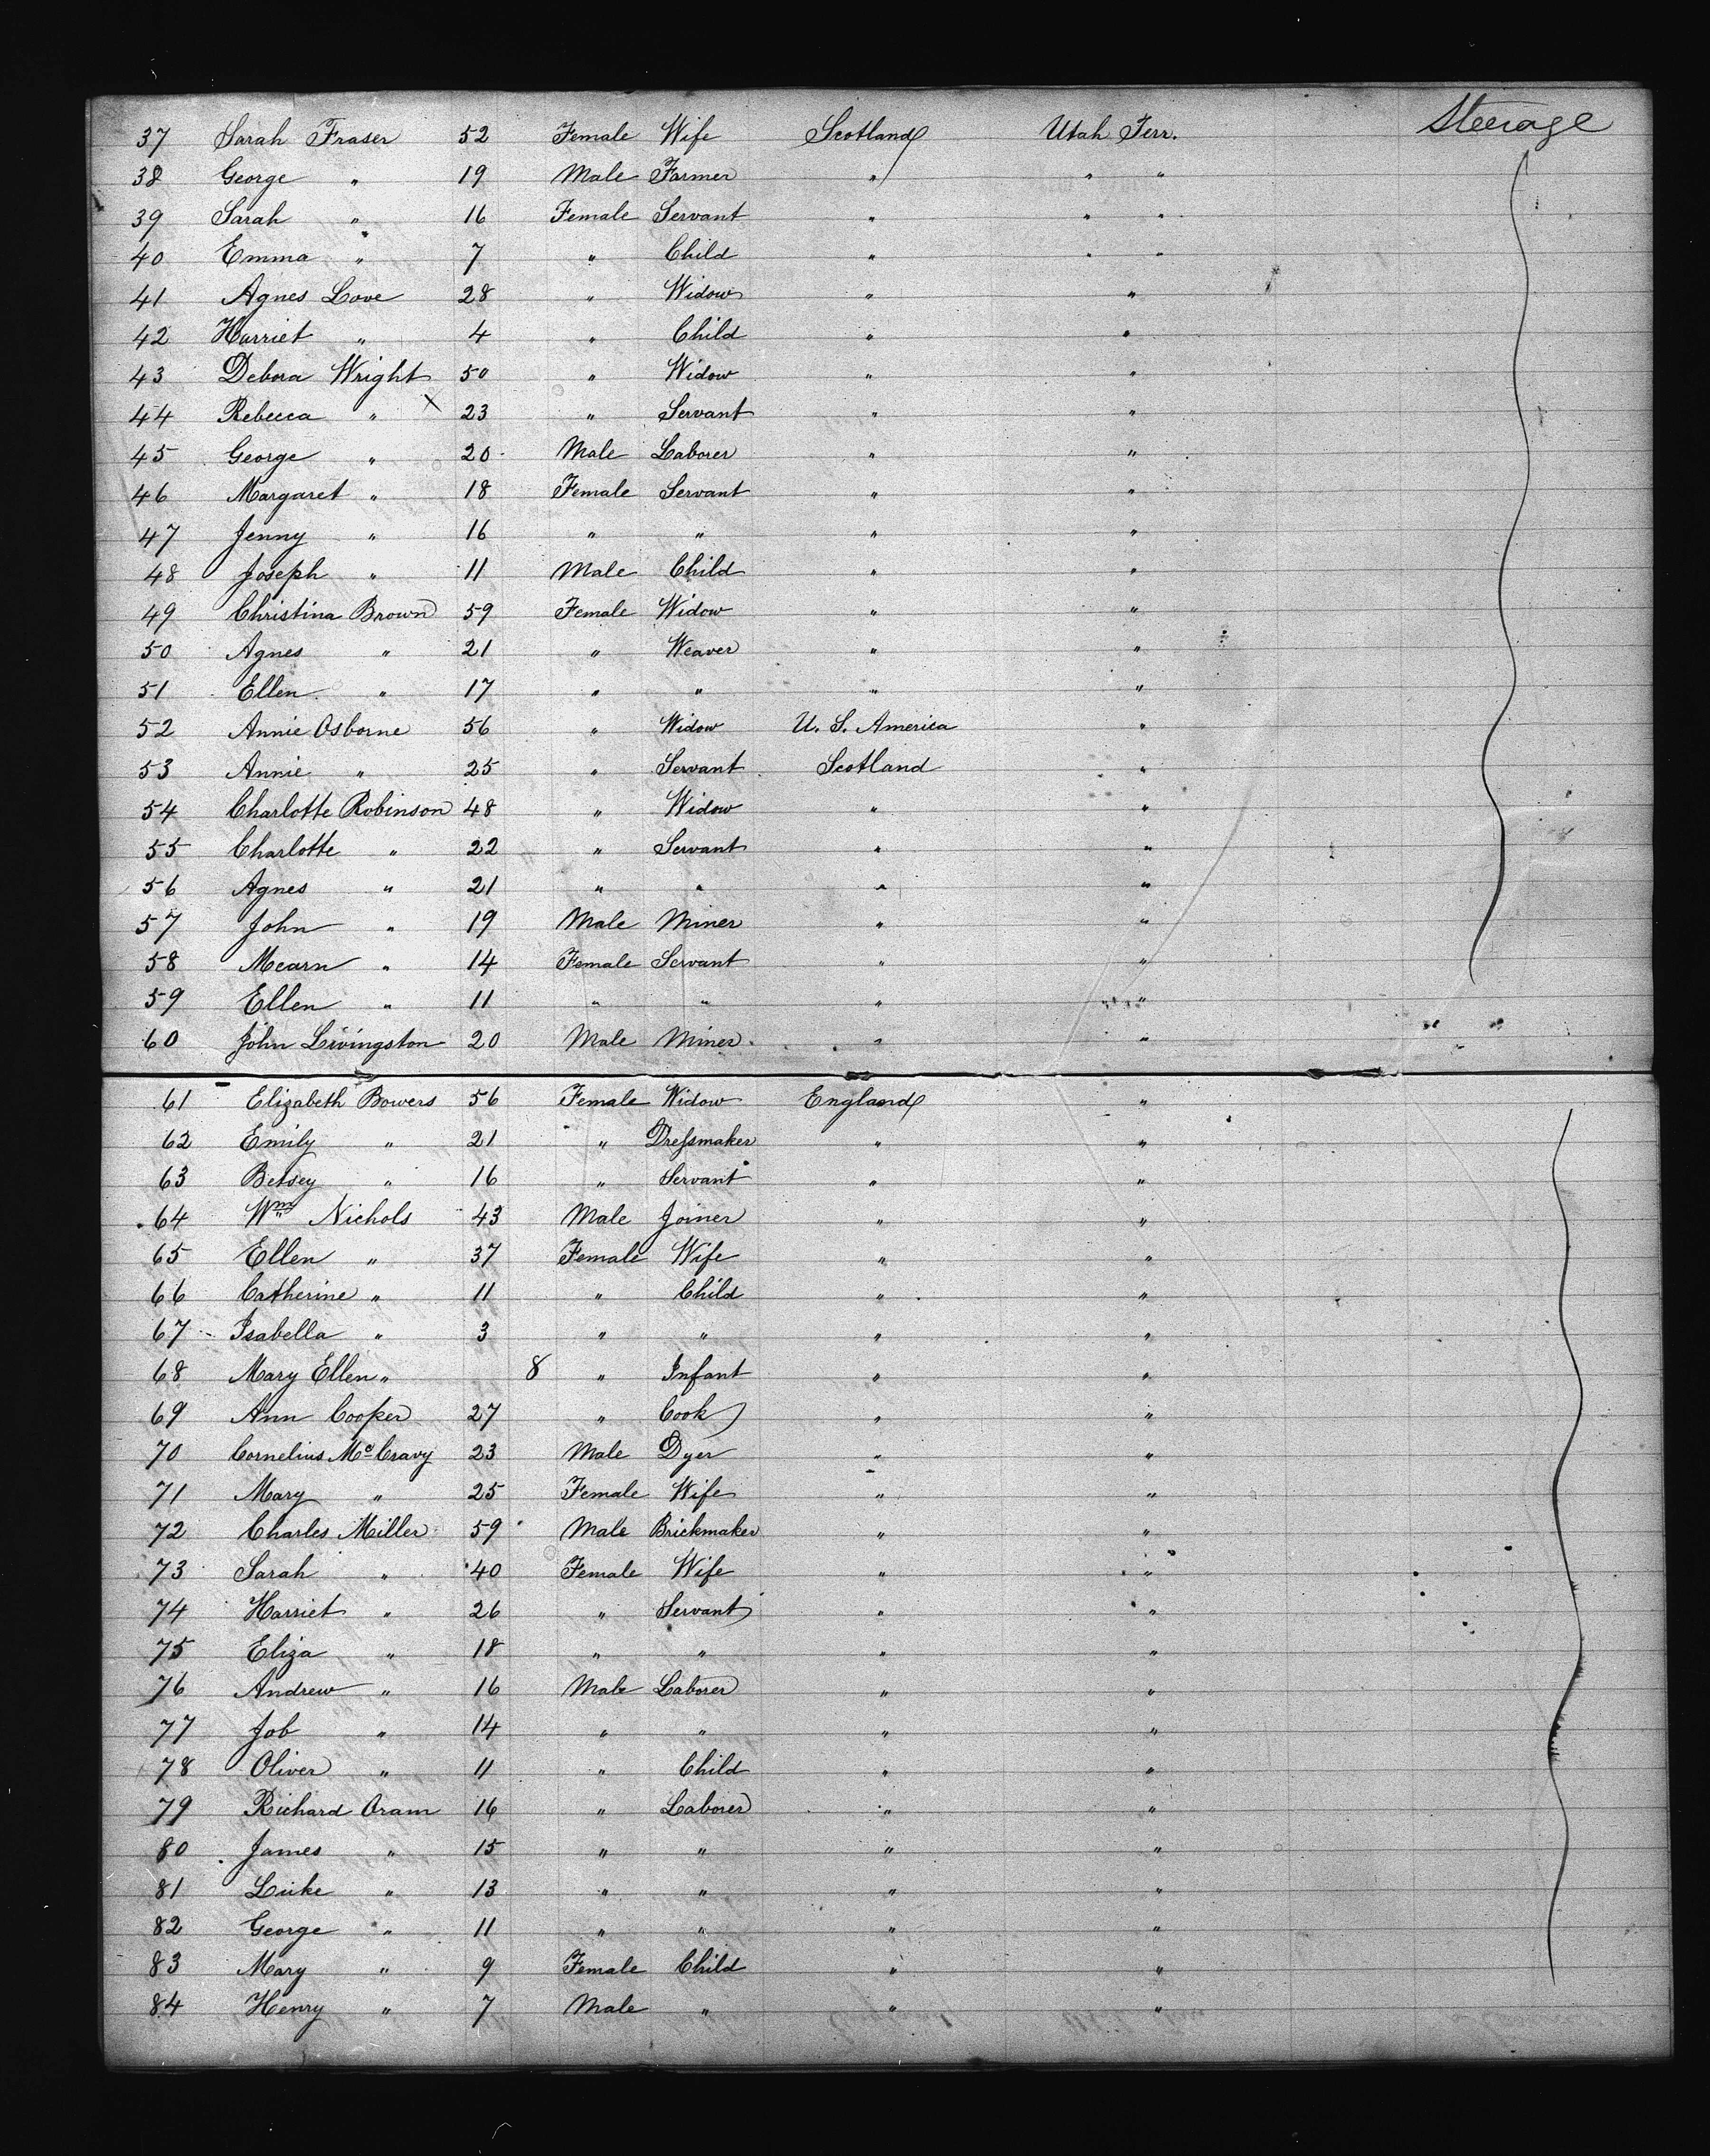 Steerage
37 Sarah Fraser 52 Female Wife Scotland Utah Terr.
38 George " 19 Male Farmer " " "
39 Sarah " 16 Female Servant " " "
40 Emma " 7 " Child " " "
41 Agnes Love 28 " Widow " "
42 Harriet " 4 " Child " "
43 Debora Wright 50 " Widow " "
44 Rebecca " X 23 " Servant " "
45 George " 20 Male Laborer " "
46 Margaret " 18 Female Servant " "
47 Jenny " 16 " " " "
48 Joseph " 11 Male Child " "
49 Christina Brown 59 Female Widow " "
50 Agnes " 21 " Weaver " "
51 Ellen " 17 " " " "
52 Annie Osborne 56 " Widow U. S. America "
53 Annie " 25 " Servant Scotland "
54 Charlotte Robinson 48 " Widow " "
55 Charlotte " 22 " Servant " "
56 Agnes " 21 " " " "
57 John " 19 Male Miner " "
58 Mearn " 14 Female Servant " "
59 Ellen " 11 " " " "
60 John Livingston 20 Male Miner " "
61 Elizabeth Bowers 56 Female Widow England "
62 Emily " 21 " Dreſsmaker " "
63 Betsey " 16 " Servant " "
64 Wm Nichols 43 Male Joiner " "
65 Ellen " 37 Female Wife " "
66 Catherine " 11 " Child " "
67 Isabella " 3 " " " "
68 Mary Ellen " 8 " Infant " "
69 Ann Cooper 27 " Cook " "
70 Cornelius McCravy 23 Male Dyer " "
71 Mary " 25 Female Wife " "
72 Charles Miller 59 Male Brickmaker " "
73 Sarah " 40 Female Wife " "
74 Harriet " 26 " Servant " "
75 Eliza " 18 " " " "
76 Andrew " 16 Male Laborer " "
77 Job " 14 " " " "
78 Oliver " 11 " Child " "
79 Richard Oram 16 " Laborer " "
80 James " 15 " " " "
81 Luke " 13 " " " "
82 George " 11 " " " "
83 Mary " 9 Female Child " "
84 Henry " 7 Male " " "